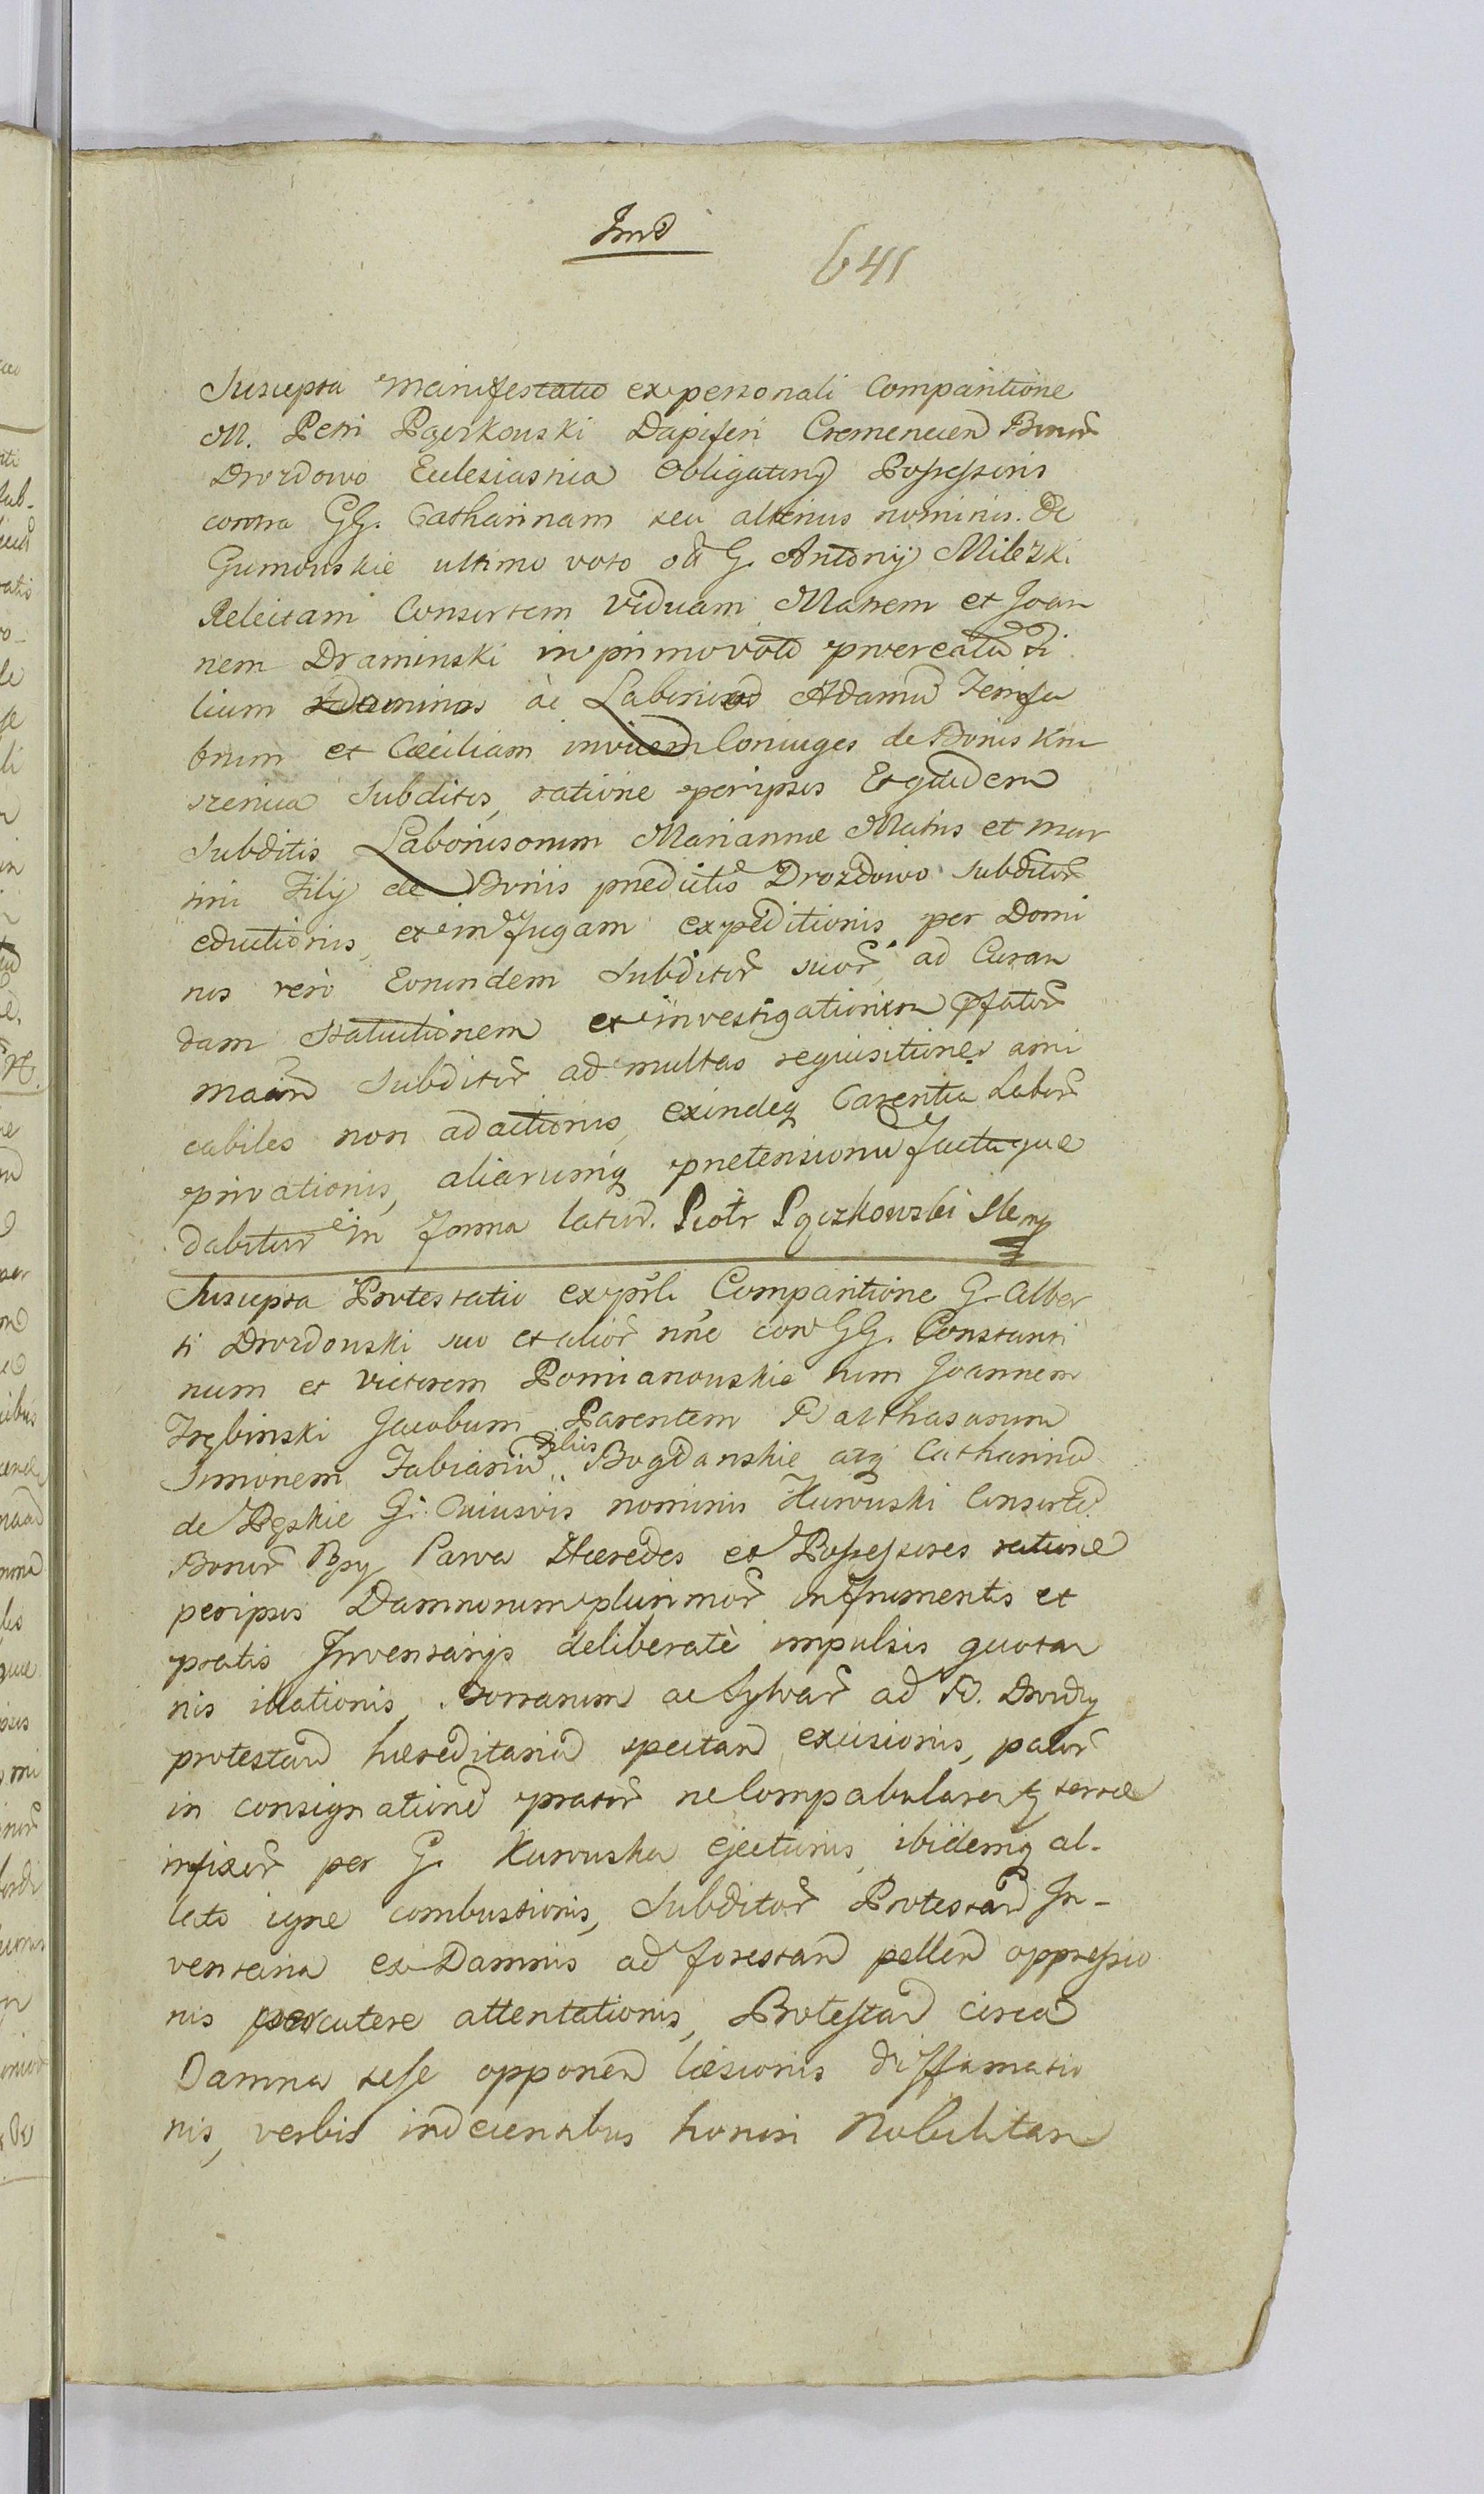 641
Suscepta Manifestatio ex personali Comparitione
M. Petri Pączkowski Dapiferi Cremenecen Bonor
Drozdowo Ecclesiastica Possessoris
contra GG. Catharinam seu alterius nominis de
Gumowskie ultimo voto G. Antonij Milezki
Relictam Consortem Viduam Matrem et Joan
nem Draminski in primo voto procreatu Fi
lium Dominos ac Adamu
brum et Cæciliam invicem Coniuges de Bonis Kru
szenica Subditos, ratione per ipsos
Subditis Laboriosorum Mariannæ Matris et Mar
tini Filij de Bonis prædictis Drozdowo Subditor
eductionis, et in fugam expeditionis per Domi
nos vero Eorundem Subditor suor, ad Curan
dam Statuitionem et investigationem pfator
Subditor ad multas requisitiones ami
cabiles non adactionis, exindeq Carentia Labor
privationis, aliarumq prætensionu Juctu que
dabitur in forma latior. Piotr Pączkowski
Suscepta Protestatio ex psli Comparitione G. Alber
ti Drozdowski suo et alior nne con GG. Constanti
num et Victorem Pomianowskie tum Joannem
Trębinski Jacobum Parentem Balthasarum
Simonem Fabianu filios Bogdanskie atq Catharina
de G. Cuiusvis nominis Kurowski Consorte
Bonor Parva Hæredes et Possessores ratione
per ipsos Damnorum plurimor in frumentis et
pratis Inventarijs deliberatè impulsis quotan
nis illationis, Borrarum ac Sylvar ad B. Drozdy
protestan hæreditaria spectan excisionis, palor
in consignatione prator ne compabularentq terræ
infixor per G. Kurowska ejectionis, ibidemq al-
lato igne combustionis, Subditor Protestan In-
ventaria ex Damnis ad forestan pellen oppressio
nis percutere attentationis, Protestan circa
Damna sese opponen læsionis diffamatio
nis, verbis indecentibus honori Nobilitari